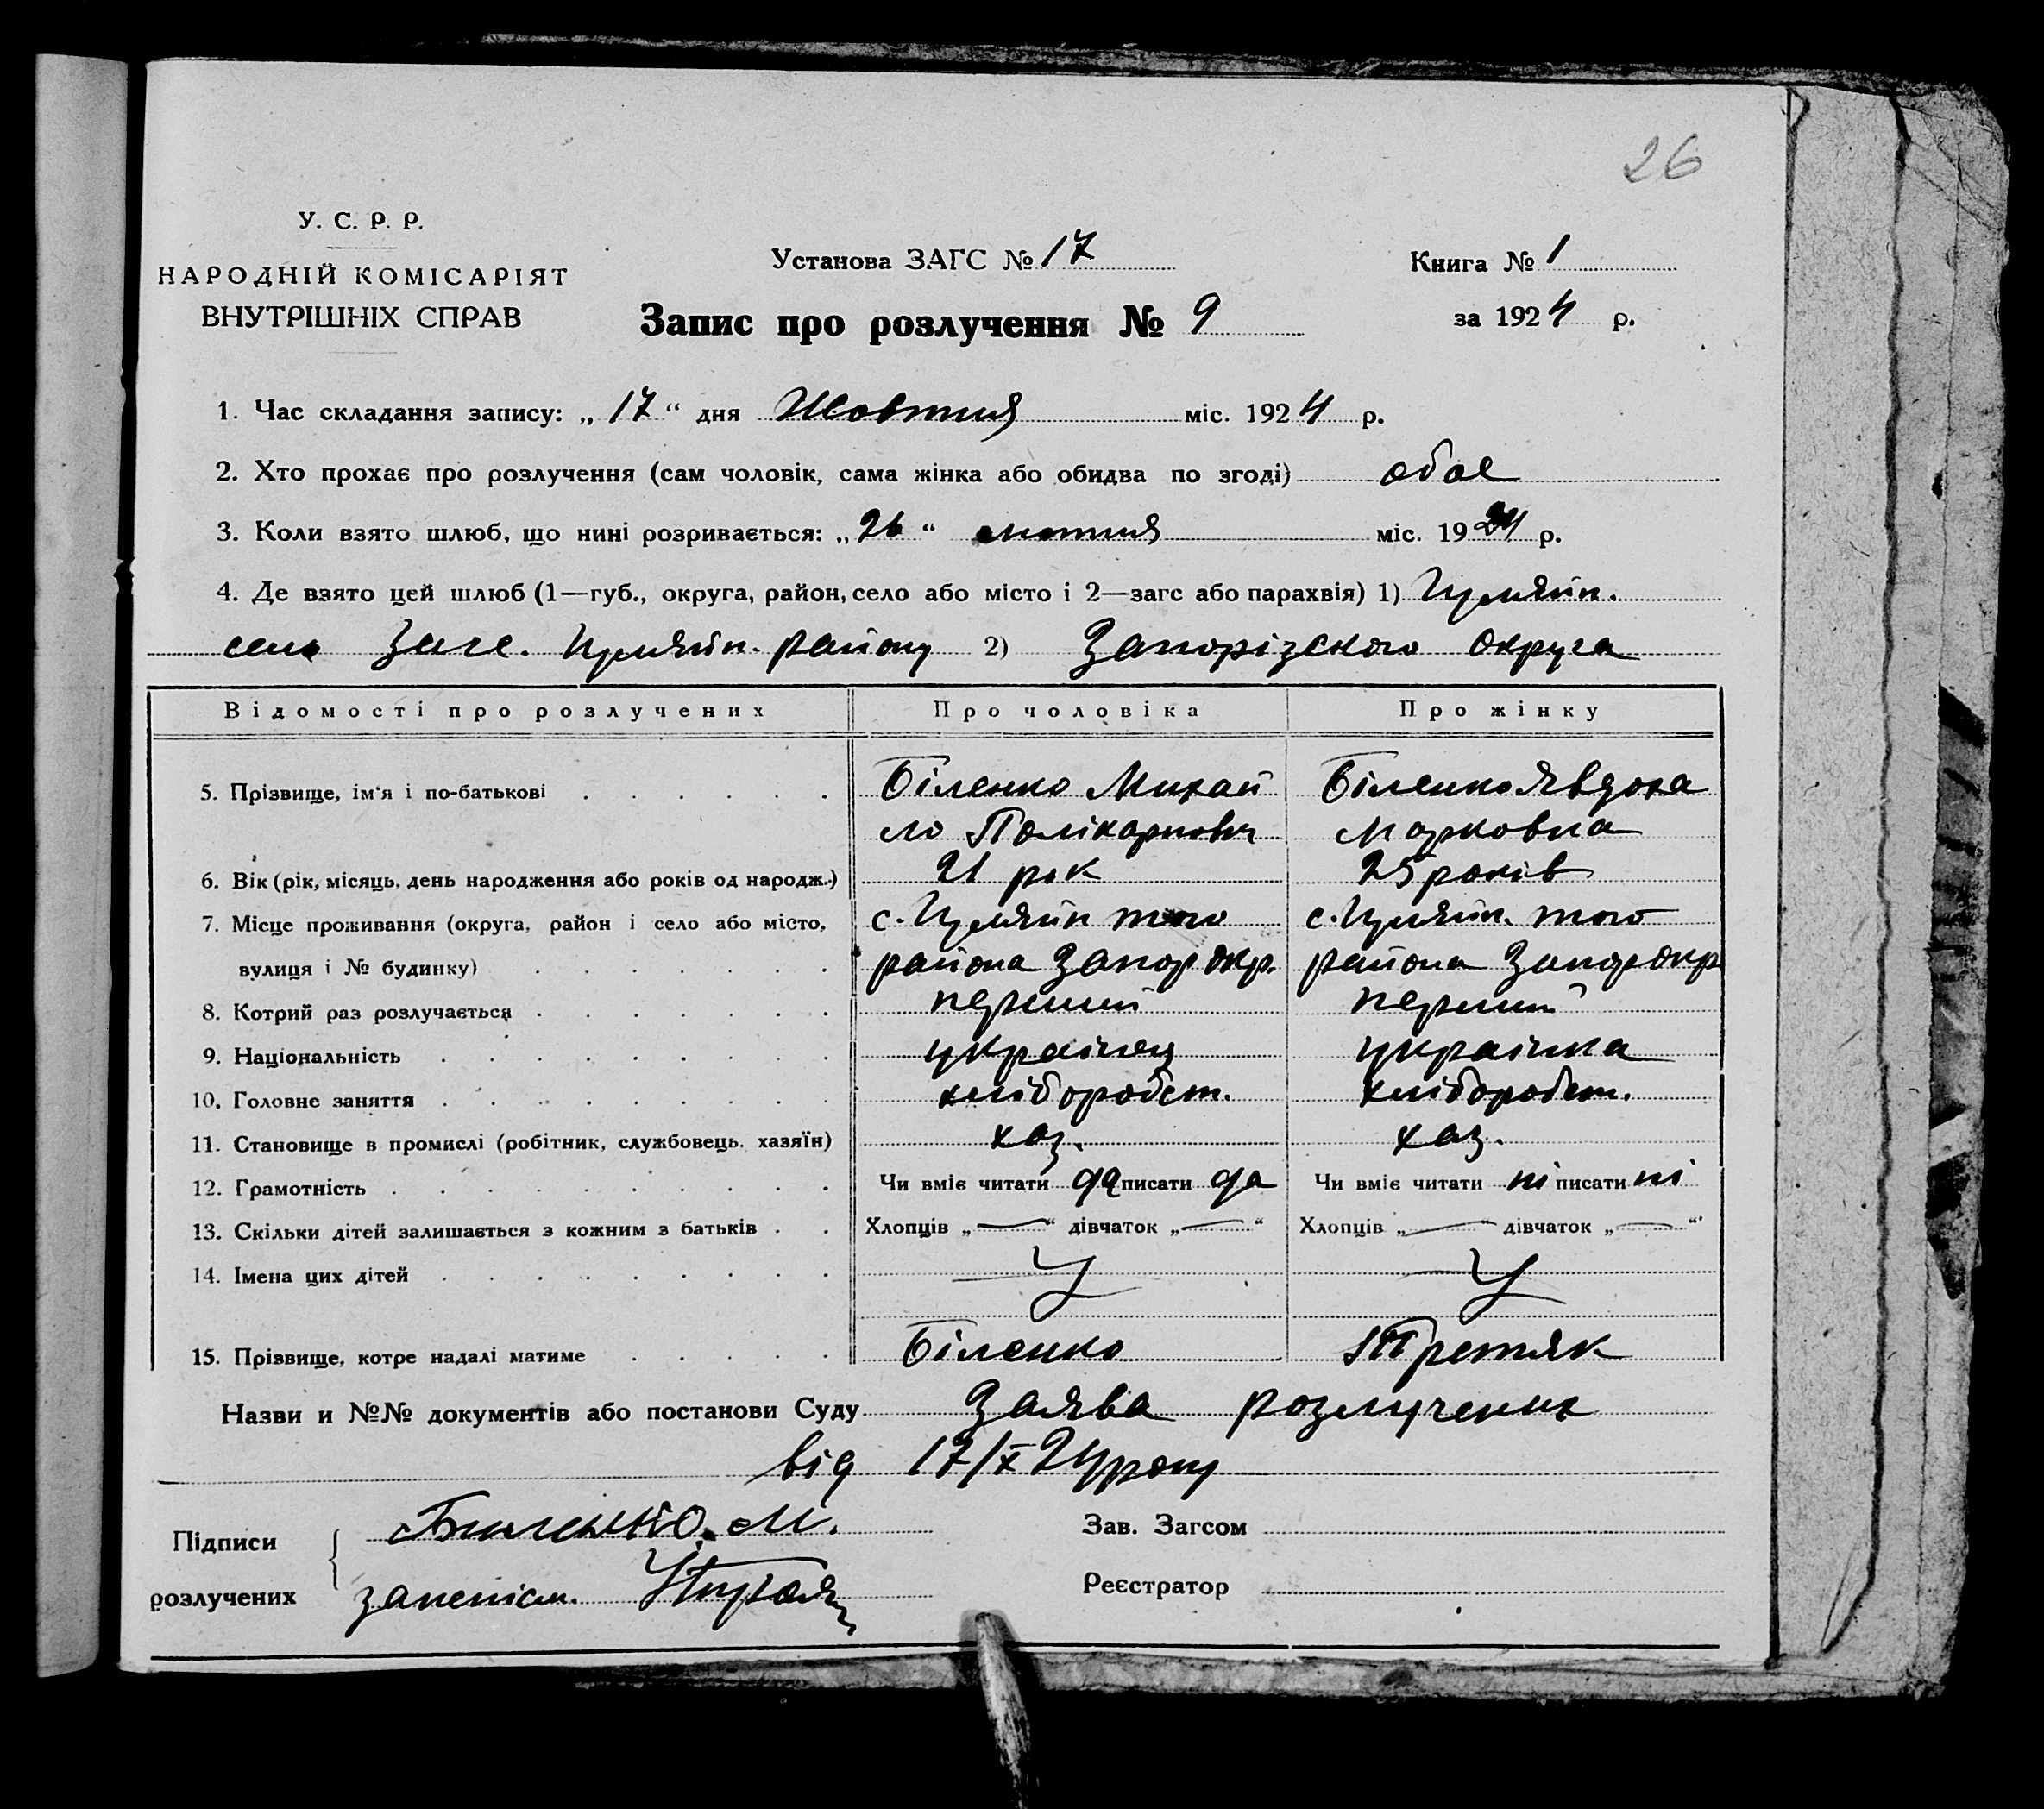 26
У. С. Р. Р.
НАРОДНІЙ КОМІСАРІЯТ
ВНУТРІШНІХ СПРАВ
Установа ЗАГС № 17
Книга № 1
Запис про розлучення № 9
за 1924 р.
1. Час складання запису: „17“ дня Жовтня міс. 1924 р.
2. Хто прохає про розлучення (сам чоловік, сама жінка або обидва по згоді) обоє
3. Коли взято шлюб, що нині розривається: „26“ лютня міс. 1924 р.
4. Де взято цей шлюб (1—губ., округа, район, село або місто і 2—загс або парахвія) 1) Гуляйп.
село Загс. Гуляйп. району 2) Запорізского округа
Відомості про розлучених Про чоловіка Про жінку
5. Прізвище, ім'я і по-батькові Біленко Михай Біленко Явдоха
ло Полікарпович Марковна
6. Вік (рік, місяць, день народження або років од народж.) 21 рік 25 років
7. Місце проживання (округа, район і село або місто, с. Гуляйп того с. Гуляйп. того
вулиця і № будинку) района Запор окр. района Запор окр
8. Котрий раз розлучається перший перший
9. Національність українец українка
10. Головне заняття хліборобст. хліборобст.
11. Становище в промислі (робітник, службовець, хазяїн) хаз. хаз.
12. Грамотність Чи вміє читати да писати да Чи вміє читати ні писати ні
13. Скільки дітей залишається з кожним з батьків Хлопців „—“ дівчаток „—“ Хлопців „—“ дівчаток „—“
14. Імена цих дітей
15. Прізвище, котре надалі матиме Біленко Третяк
Назви и №№ документів або постанови Суду Заява розлучених
від 17/X 24 року
Підписи
розлучених
Биленко. М.
Зав. Загсом
Реєстратор